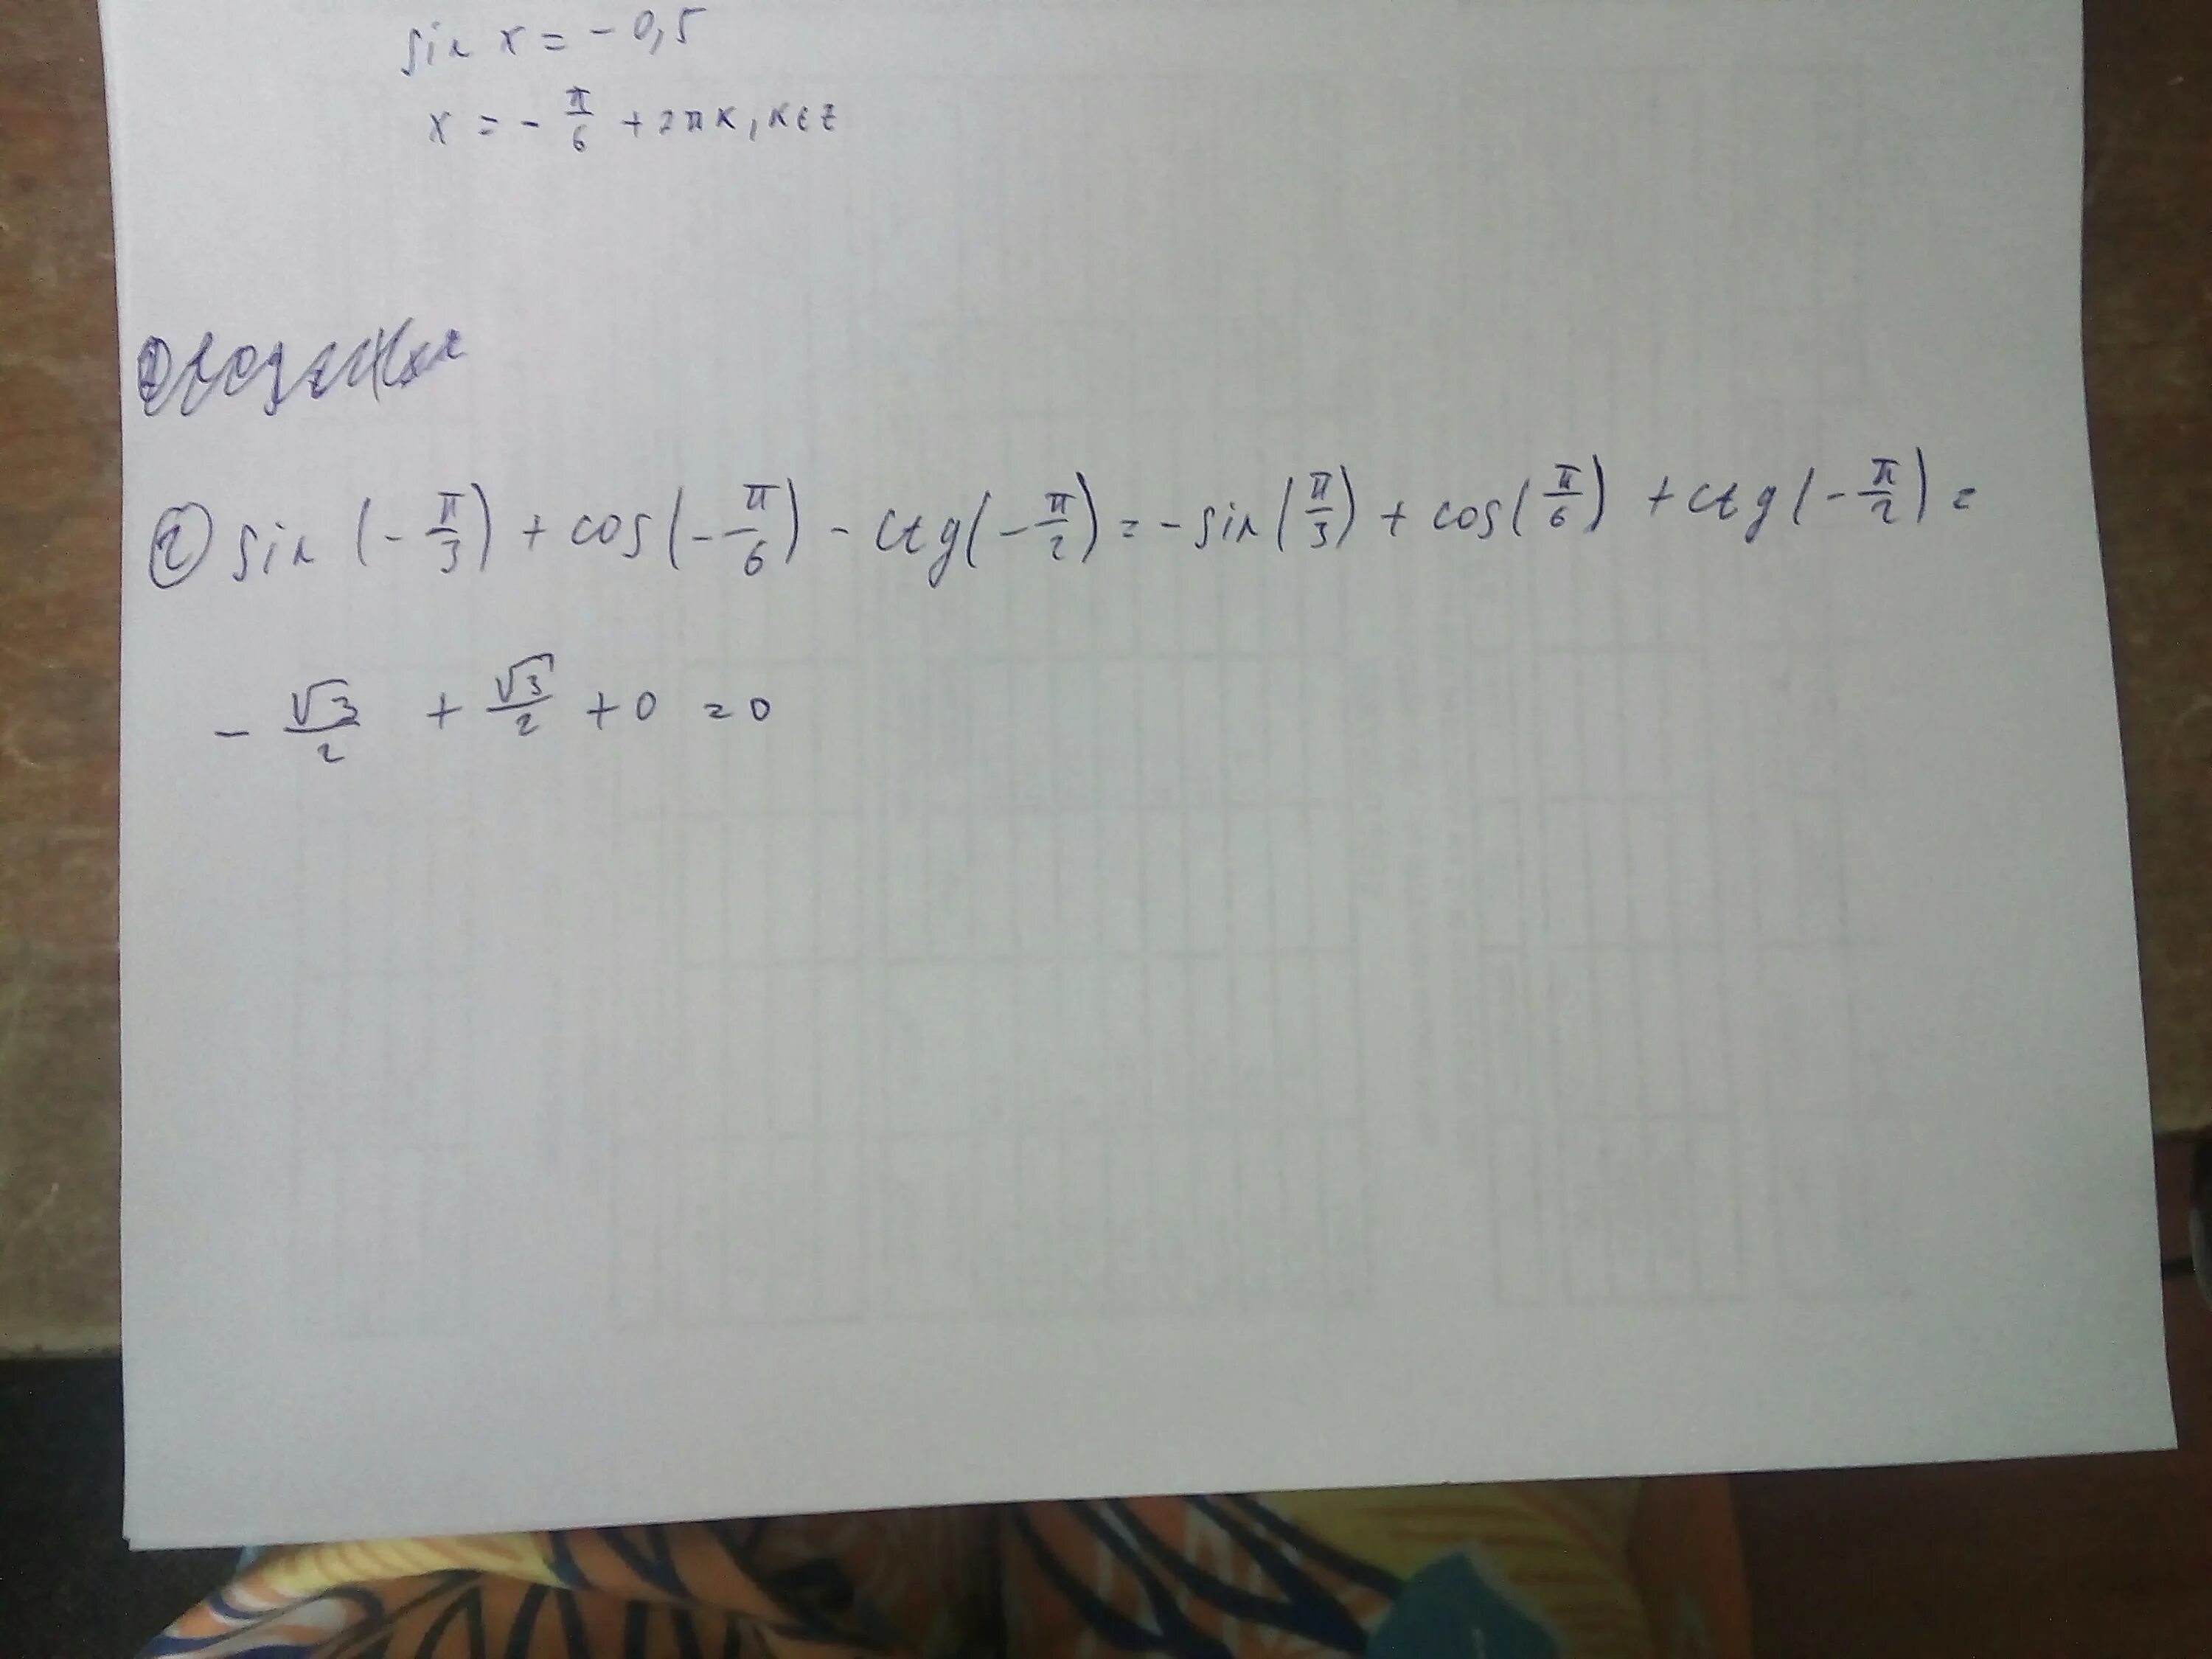 sin x = - 0,5
x = - π/6 + 2πк, к∈z
② sin (- π/3) + cos(- π/6) - ctg(- π/2) = - sin(π/3) + cos(π/6) + ctg(- π/2) =
- √3/2 + √3/2 + 0 = 0